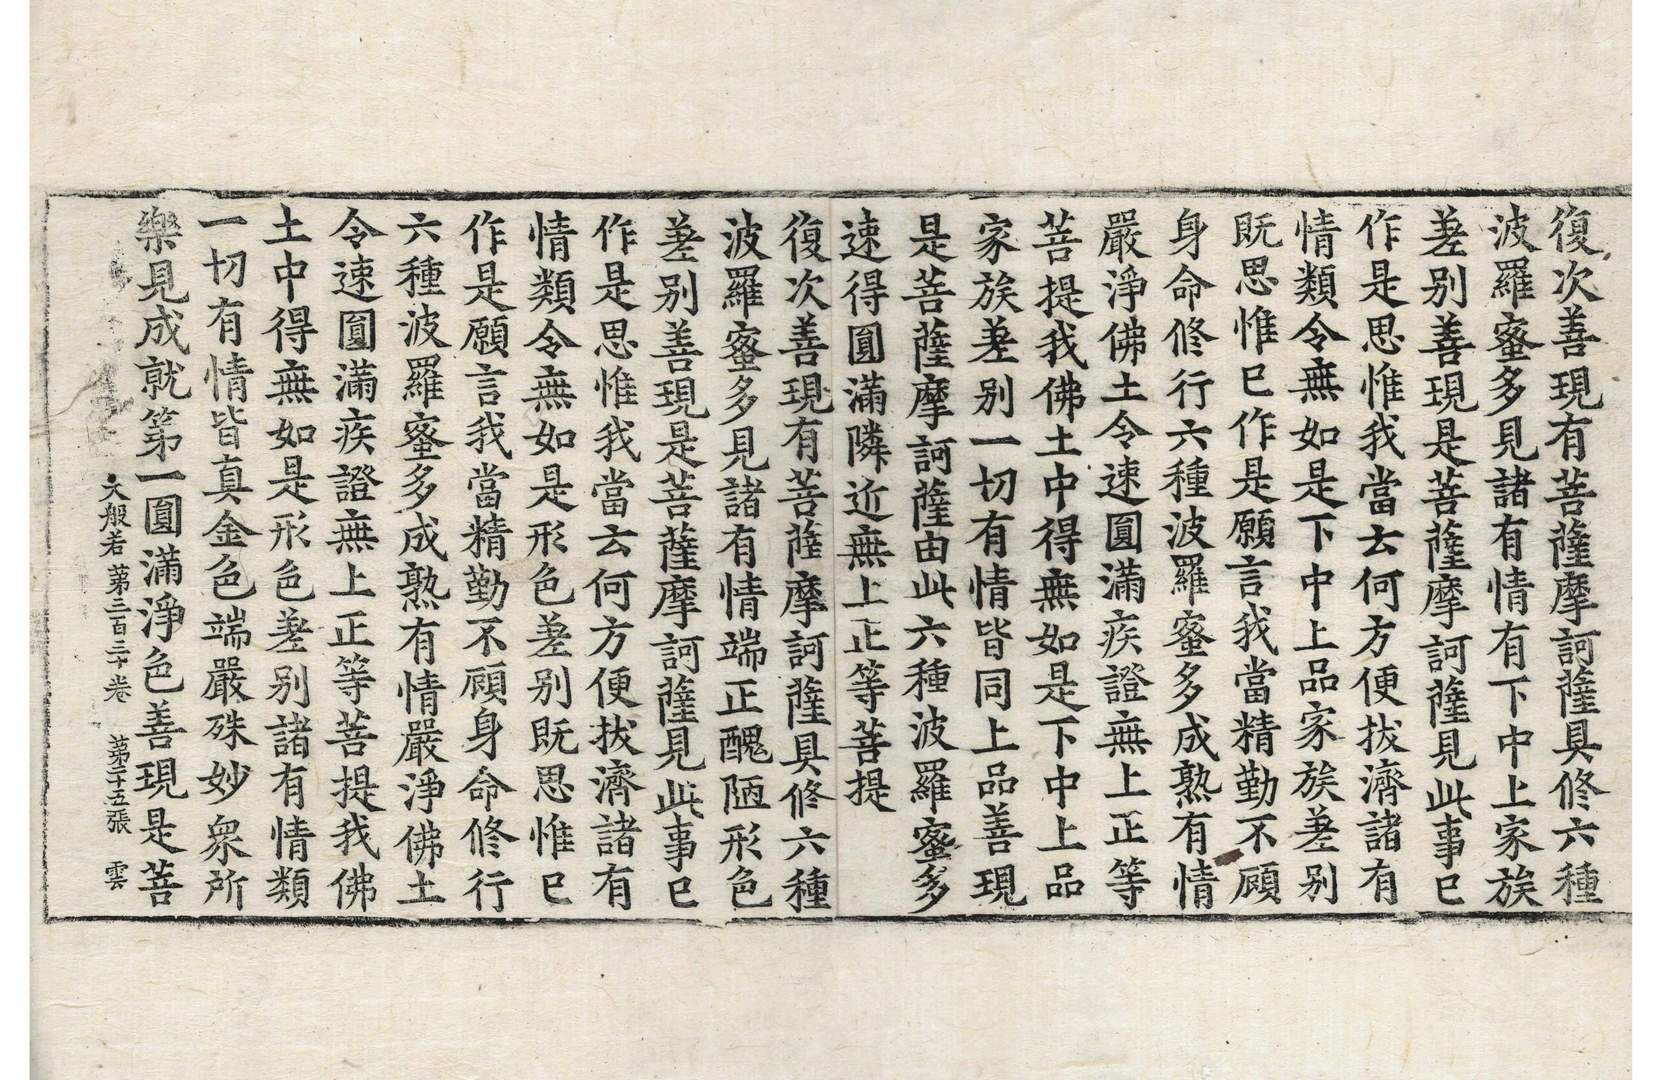 復次善現有菩薩摩訶薩具修六種
波羅蜜多見諸有情有下中上家族
差別善現是菩薩摩訶薩見此事已
作是思惟我當去何方便拔濟諸有
情類令無如是下中上品家族差別
既思惟已作是願言我當精勤不顧
身命修行六種波羅蜜多成熟有情
嚴淨佛土令速圓滿疾證無上正等
菩提我佛土中得無如是下中上品
家族差別一切有情皆同上品善現
是菩薩摩訶薩由此六種波羅蜜多
速得圓滿隣近無上正等菩提
復次善現有菩薩摩訶薩具修六種
波羅蜜多見諸有情端正醜陋形色
差別善現是菩薩摩訶薩見此事已
作是思惟我當去何方便拔濟諸有
情類令無如是形色差別既思惟已
作是願言我當精勤不顧身命修行
六種波羅蜜多成熟有情嚴淨佛土
令速圓滿疾證無上正等菩提我佛
土中得無如是形色差別諸有情類
一切有情皆真金色端嚴殊妙眾所
樂見成就第一圓滿淨色善現是菩
大般若 第三百三十卷 第二十五張 雲